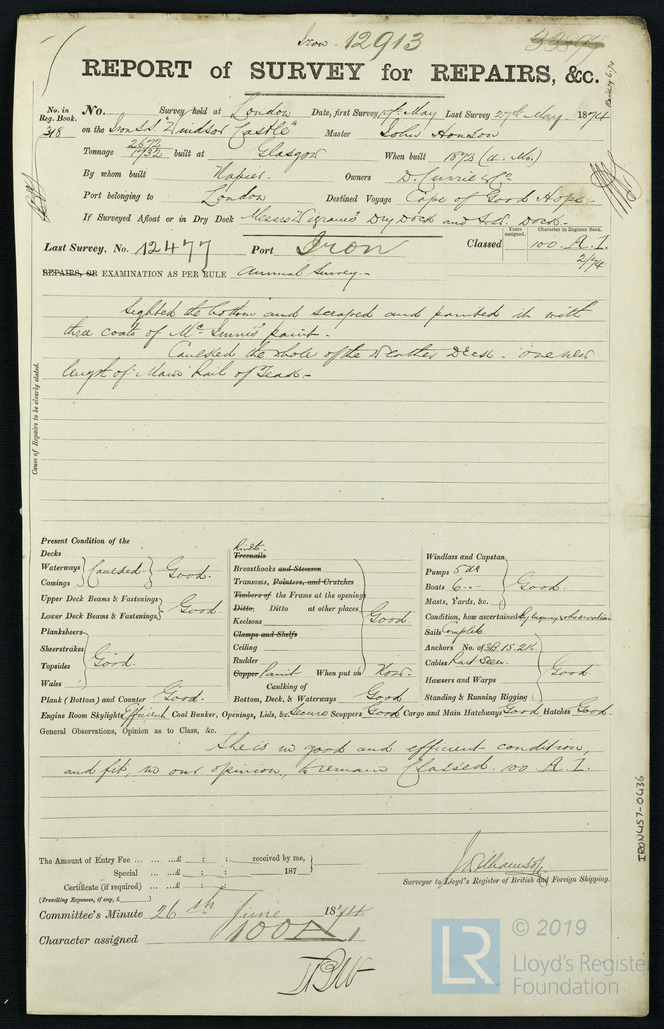 Iron. 12913
REPORT of SURVEY for REPAIRS, &c.
No. in Reg. Book. 318
No. Survey held at London Date, first Survey May Last Survey 27th May 1874
on the Iron S.S. "Windsor Castle" Master John
Tonnage 2672 1732 built at Glasgow When built 1873 (4. Mo.)
By whom built Napier. Owners D. Currie & Co
Port belonging to London Destined Voyage Cape of Good Hope
If Surveyed Afloat or in Dry Dock Messrs Wigram's Dry Dock and Dock.
Last Survey, No. 12477 Port Iron Classed Years assigned. Character in Register Book. 100. A. 1. 2/74
REPAIRS, OR EXAMINATION AS PER RULE Annual Survey.
Cause of Repairs to be clearly stated.
Sighted the bottom and scraped and painted it with
three coats of paint.
Caulked the whole of the Weather Deck. One new
length of Main Rail of Teak.
Present Condition of the
Decks
Waterways Caulked. Good.
Comings
Upper Deck Beams & Fastenings
Lower Deck Beams & Fastenings Good.
Planksheers
Sheerstrakes
Topsides Good.
Wales
Plank (Bottom) and Counter Good.
Rivets.
Treenails
Breasthooks and Stemson
Transoms, Pointers, and Crutches
Timbers of the Frame at the openings
Ditto. Ditto at other places Good.
Keelsons
Clamps and Shelfs
Ceiling
Rudder
Copper Paint When put on Now.
Caulking of
Bottom, Deck, & Waterways Good
Windlass and Capstan
Pumps 5 No
Boats 6 Good.
Masts, Yards, &c.
Condition, how ascertained By inquiry & observation
Sails Complete.
Anchors No. of 3B. 1S. 2K.
Cables Part seen. Good.
Hawsers and Warps
Standing & Running Rigging
Engine Room Skylights Efficient Coal Bunker, Openings, Lids, &c. Secure Scuppers Good Cargo and Main Hatchways Good Hatches Good.
General Observations, Opinion as to Class, &c.
She is in good and efficient condition,
and fit, in our opinion, to remain Classed. 100. A. 1.
The Amount of Entry Fee ... ... ...£ : : received by me,
Special ... ...£ : : 187
Certificate (if required) ... ...£ : :
(Travelling Expenses, if any, £ )
Surveyor to Lloyd's Register of British and Foreign Shipping.
Committee's Minute 26th June 1874
Character assigned 100 A 1
IRON457-0436
LR © 2019
Lloyd's Register
Foundation